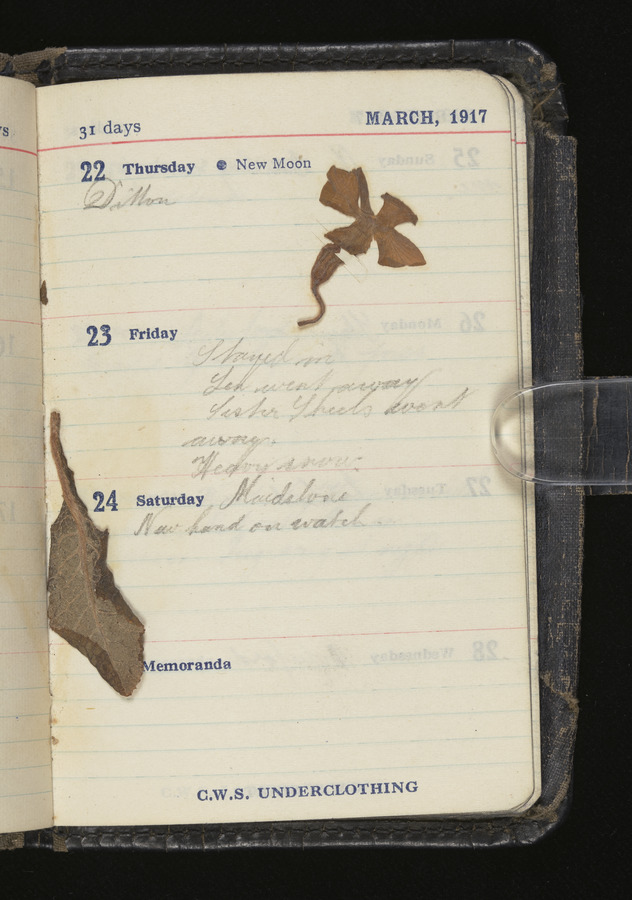 31 days
MARCH, 1917
22 Thursday New Moon
Ditton
23 Friday
Stayed in
Len went away
Sister Sheels went
away.
Heavy snow.
24 Saturday Maidstone
New hand on watch.
Memoranda
C.W.S. UNDERCLOTHING